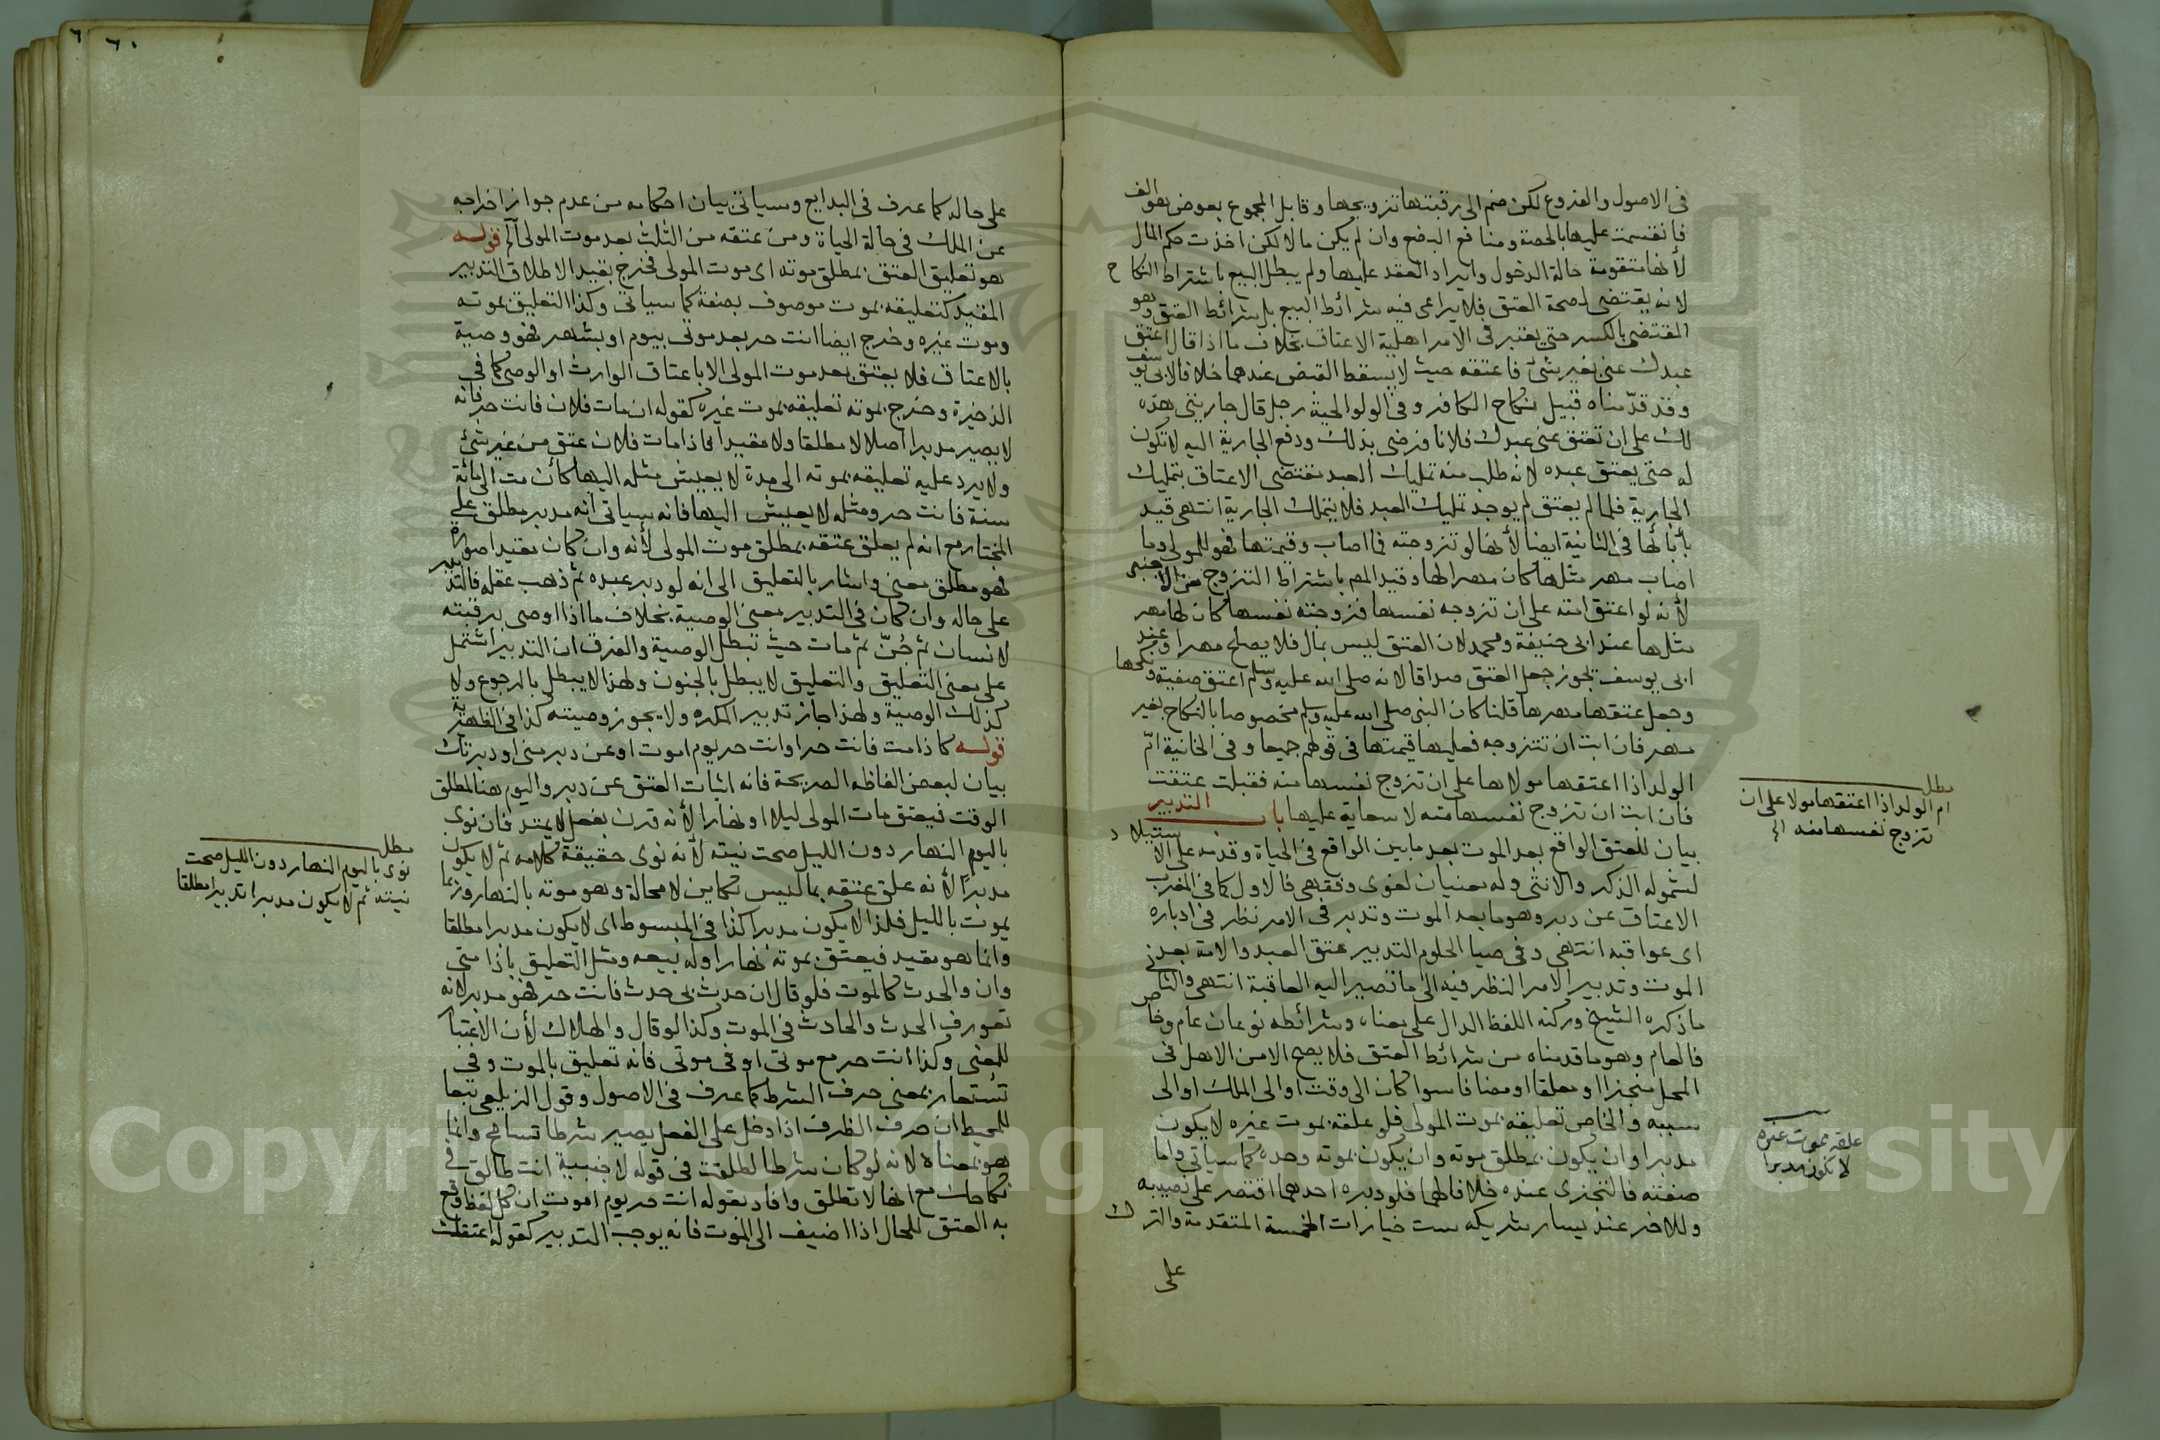 في الاصول والفروع لكن ضم الى رقبتها تزويجها وقابل المجموع بعوض هو الف
فانقسمت عليها بالحصة ومنافع البضع وان لم يكن مالا لكن اخذت حكم المال
لأنها متقومة حالة الدخول وايراد العقد عليها ولم يبطل البيع باشتراط النكاح
لانه يقتضى لصحة العتق فلا يراعى فيه شرائط البيع بل شرائط العتق وهو
المقتضى بالكسر حتى يعتبر في الامر اهلية الاعتاق بخلاف ما اذا قال اعتق
عبدك عني بغير شئ فاعتقه حيث لا يسقط القبض عندهما خلافا لابى يوسف
وقد قدمناه قبيل نكاح الكافر وفي الولوالجية رجل قال جاريتي هذه
لك على ان تعتق عني عبدك فلانا فرضى بذلك ودفع الجارية اليه لا تكون
له حتى يعتق عبده لانه طلب منه تمليك العبد مقتضى الاعتاق بتمليك
الجارية فلما لم يعتق لم يوجد تمليك العبد فلا يتملك الجارية انتهى قيد
بأبائها في الثانية ايضا لأنها لو تزوجته فما اصاب وقيمتها فهو للمولى وما
اصاب مهر مثلها كان مهرا لها وقيد المص باشتراط التزوج من الاجنبى
لأنه لو اعتق امته على ان تزوجه نفسها فزوجته نفسها كان لها مهر
مثلها عند ابى حنيفة ومحمد لان العتق ليس بمال فلا يصلح مهرا وعند
ابى يوسف يجوز جعل العتق صداقا لانه صلى الله عليه وسلم اعتق صفية ونكحها
وجعل عتقها مهرها قلنا كان النبي صلى الله عليه وسلم مخصوصا بالنكاح بغير
مهر فان ابت ان تتزوجه فعليها قيمتها في قولهم جميعا وفي الخانية ام
الولد اذا اعتقها مولاها على ان تزوج نفسها منه فقبلت عتقت
فان ابت ان تزوج نفسها منه لا سعاية عليها باب التدبير
بيان للعتق الواقع بعد الموت بعد ما بين الواقع في الحياة وقدمه على الاستيلاد
لشموله الذكر والانثى وله معنيان لغوى وفقهى فالاول كما في المغرب
الاعتاق عن دبر وهو ما بعد الموت وتدبر في الامر نظر في ادباره
اى عواقبه انتهى وفي ضيا الحلوم التدبير عتق العبد والامة بعد
الموت وتدبير الامر النظر فيه الى ما تصير اليه العاقبة انتهى والثانى
ما ذكره الشيخ وركنه اللفظ الدال على معناه وشرائطه نوعان عام وخاص
فالعام وهو ما قدمناه من شرائط العتق فلا يصح الا من الاهل في
المحل منجزا او معلقا او مضافا سوا كان الى وقت او الى الملك او الى
سببه والخاص تعليقه بموت المولى فلو علقه بموت غيره لا يكون
مدبرا وان يكون بمطلق موته وان يكون بموته وحده كما سياتى واما
صفته فالتجزى عنده خلافا لهما فلو دبره احدهما اقتصر على نصيبه
وللاخر عند يسار شريكه ست خيارات الخمسة المتقدمة والترك
على
مطلب
ام الولد اذا اعتقها مولا على ان
تزوج نفسها منه الخ
علقه بموت غيره
لا يكون مدبرا
٦٠
على حاله كما عرف في البدايع وسياتي بيان احكامه من عدم جواز اخراجه
عن الملك في حالة الحياة ومن عتقه من الثلث بعد موت المولى الخ قوله
هو تعليق العتق بمطلق موته اى موت المولى فخرج بقيد الاطلاق التدبير
المقيد كتعليقه بموت موصوف بصفة كما سياتى وكذا التعليق بموته
وموت غيره وخرج ايضا انت حر بعد موتى بيوم او بشهر فهو وصية
بالاعتاق فلا يعتق بعد موت المولى الا باعتاق الوارث او الوصى كما في
الذخيرة وخرج بموته تعليقه بموت غيره كقوله ان مات فلان فانت حر فانه
لا يصير مدبرا اصلا لا مطلقا ولا مقيدا فاذا مات فلان عتق من غير شئ
ولا يرد عليه تعليقه بموته الى مدة لا يعيش مثله اليها كأن مت الى مائة
سنة فانت حر ومثله لا يعيش اليها فانه سياتى انه مدبر مطلق على
المختار مع انه لم يعلق عتقه بمطلق موت المولى لأنه وان كان مقيدا صورة
فهو مطلق معنى واشار بالتعليق الى انه لو دبر عبده ثم ذهب عقله فالتدبير
على حاله وان كان في التدبير معنى الوصية بخلاف ما اذا اوصى برقبته
لانسان ثم جُنّ ثم مات حيث تبطل الوصية والفرق ان التدبير اشتمل
على معنى التعليق والتعليق لا يبطل بالجنون ولهذا لا يبطل بالرجوع ولا
كذلك الوصية ولهذا جاز تدبير المكره ولا يجوز وصيته كذا في الظهيرية
قوله كاذا مت فانت حر او انت حر يوم اموت او عن دبر منى او دبرتك
بيان لبعض الفاظه الصريحة فانه اثبات العتق عن دبر واليوم هنا لمطلق
الوقت فيعتق مات المولى ليلا او نهارا لأنه قرن بفعل لا يمتد فان نوى
باليوم النهار دون الليل صحت نيته لأنه نوى حقيقة كلامه ثم لا يكون
مدبرا لأنه علق عتقه بما ليس بكاين لا محالة وهو موته بالنهار وربما
يموت بالليل فلذا لا يكون مدبرا كذا في المبسوط اى لا يكون مدبرا مطلقا
وانما هو مقيد فيعتق بموته نهارا وله بيعه ومثل التعليق باذا متى
وان والحدث كالموت فلو قال ان حدث بى حدث فانت حر فهو مدبر لانه
تعورف الحدث والحادث في الموت وكذا لو قال والهلاك لأن الاعتبار
للمعنى وكذا انت حر مع موتى او في موتى فانه تعليق بالموت وفي
تستعار بمعنى حرف الشرط كما عرف في الاصول وقول الزيلعى تبعا
للمحيط ان حرف الظرف اذا دخل على الفعل يصير شرطا تسامح وانما
هو بمعناه لانه لو كان شرطا لطلقت في قوله لاجنبية انت طالق في
نكاحك مع انها لا تطلق وافاد بقوله انت حر يوم اموت ان كل لفظ وقع
به العتق للحال اذا اضيف الى الموت فانه يوجب التدبير كقوله اعتقتك
مطلب
نوى باليوم النهار دون الليل صحت
نيته ثم لا يكون مدبرا تدبيرا مطلقا